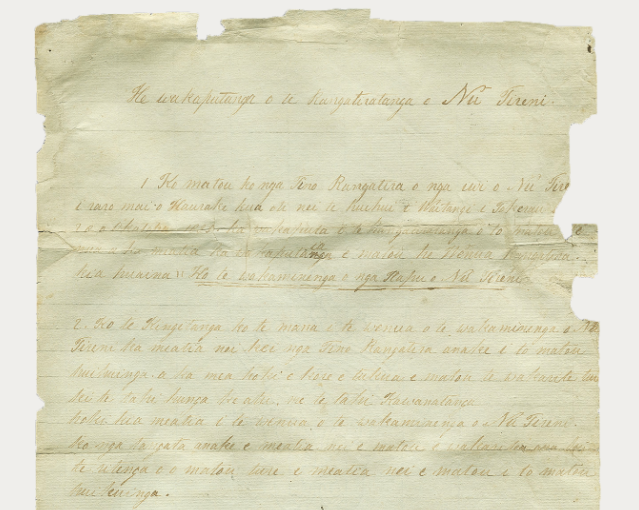 He wakaputanga o te Rangatiratanga o Nu Tireni.
1 Ko matou ko nga Tino Rangatira o nga iwi o Nu Tire
i raro mai o Hauraki kua oti nei te huihui i Waitangi i Tokerau
ra o Oketopa ka wakaputa i te Rangatiratanga o to matou
ka meatia ka wakaputanga e matou he Wenua Rangatira
kia huaina "Ko te wakaminenga o nga Hapu o Nu Tireni
2. Ko te Kingitanga ko te mana i te wenua o te wakaminenga o Nu
Tireni ka meatia nei kei nga Tino Rangatira anake i to matou
huihuinga. a ka mea hoki e kore e tukua e matou te wakarite ture
ki te tahi hunga ke atu, me te tahi Kawanatanga
hoki kia meatia i te wenua o te wakaminenga o Nu Tireni.
ko nga tangata anake e meatia nei e matou e wakarite ana ki
te ritenga o o matou ture e meatia nei e matou i to matou
huihuinga.